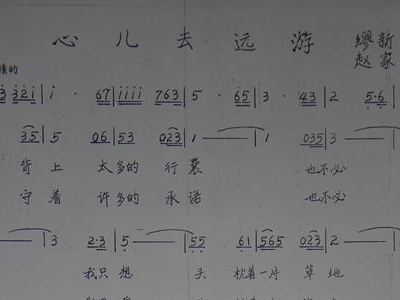 心儿去远游 缪新
赵家
情的
3 321 | 1 · 67 | 1111 763 | 5 · 65 | 3 · 43 | 2 5·6
35 | 5 06 | 53 023 | 1 — | 1 035 | 3 —
背上 太多的行囊 也不必
守着 许多的承诺 也不必
— | 3 2·3 | 5 — | 55 61 | 565 023 | 2 —
我只想 头枕着一片草地